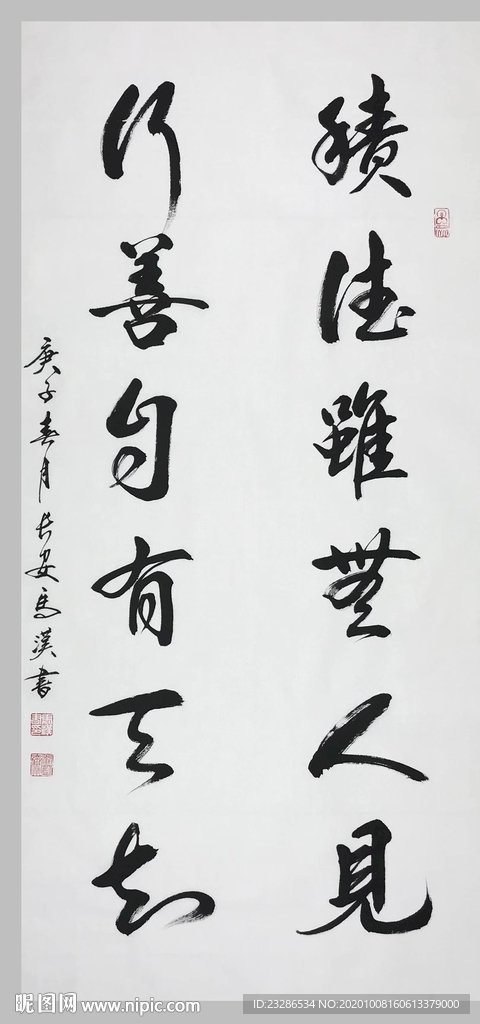 積德雖無人見
行善自有天知
庚子春月長安馬漢書
昵图网 www.nipic.com
ID:23286534 NO:20201008160613379000